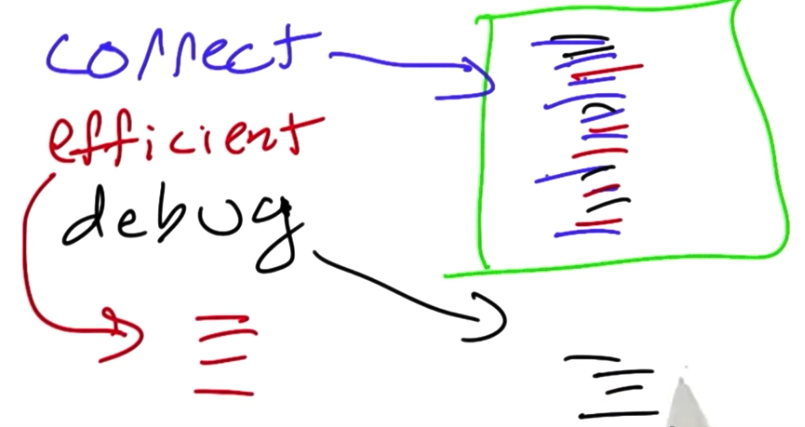 correct
efficient
debug